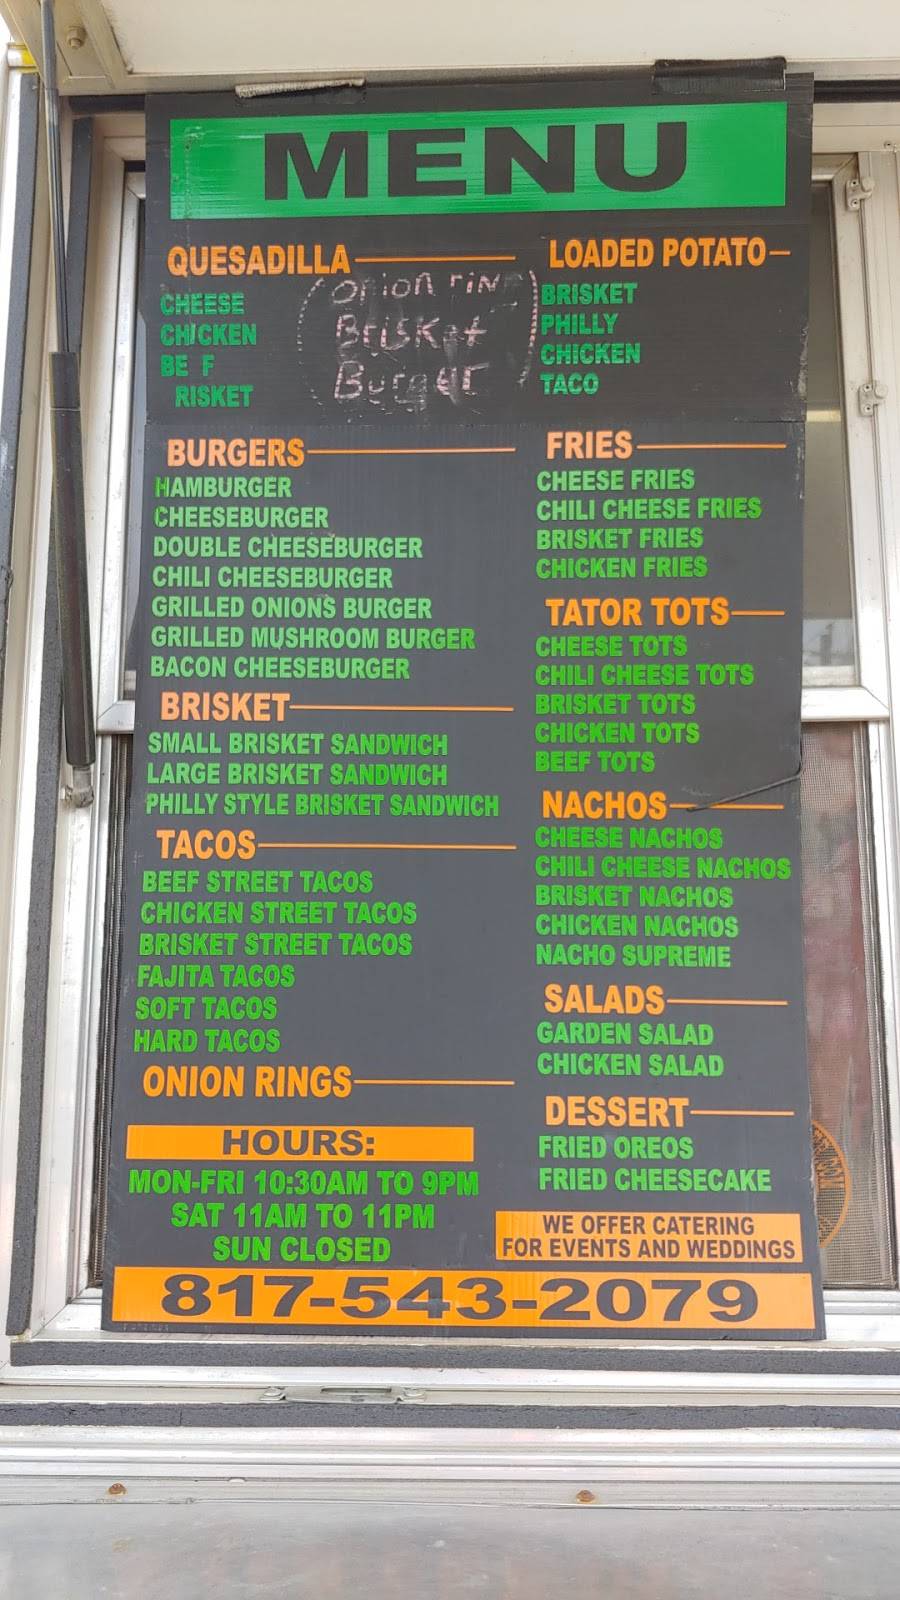 MENU
QUESADILLA
CHEESE
CHICKEN
BE F
RISKET
Onion rin
Brisket
Burger
LOADED POTATO
BRISKET
PHILLY
CHICKEN
TACO
BURGERS
HAMBURGER
CHEESEBURGER
DOUBLE CHEESEBURGER
CHILI CHEESEBURGER
GRILLED ONIONS BURGER
GRILLED MUSHROOM BURGER
BACON CHEESEBURGER
BRISKET
SMALL BRISKET SANDWICH
LARGE BRISKET SANDWICH
PHILLY STYLE BRISKET SANDWICH
TACOS
BEEF STREET TACOS
CHICKEN STREET TACOS
BRISKET STREET TACOS
FAJITA TACOS
SOFT TACOS
HARD TACOS
ONION RINGS
FRIES
CHEESE FRIES
CHILI CHEESE FRIES
BRISKET FRIES
CHICKEN FRIES
TATOR TOTS
CHEESE TOTS
CHILI CHEESE TOTS
BRISKET TOTS
CHICKEN TOTS
BEEF TOTS
NACHOS
CHEESE NACHOS
CHILI CHEESE NACHOS
BRISKET NACHOS
CHICKEN NACHOS
NACHO SUPREME
SALADS
GARDEN SALAD
CHICKEN SALAD
DESSERT
FRIED OREOS
FRIED CHEESECAKE
HOURS:
MON-FRI 10:30AM TO 9PM
SAT 11AM TO 11PM
SUN CLOSED
WE OFFER CATERING
FOR EVENTS AND WEDDINGS
817-543-2079